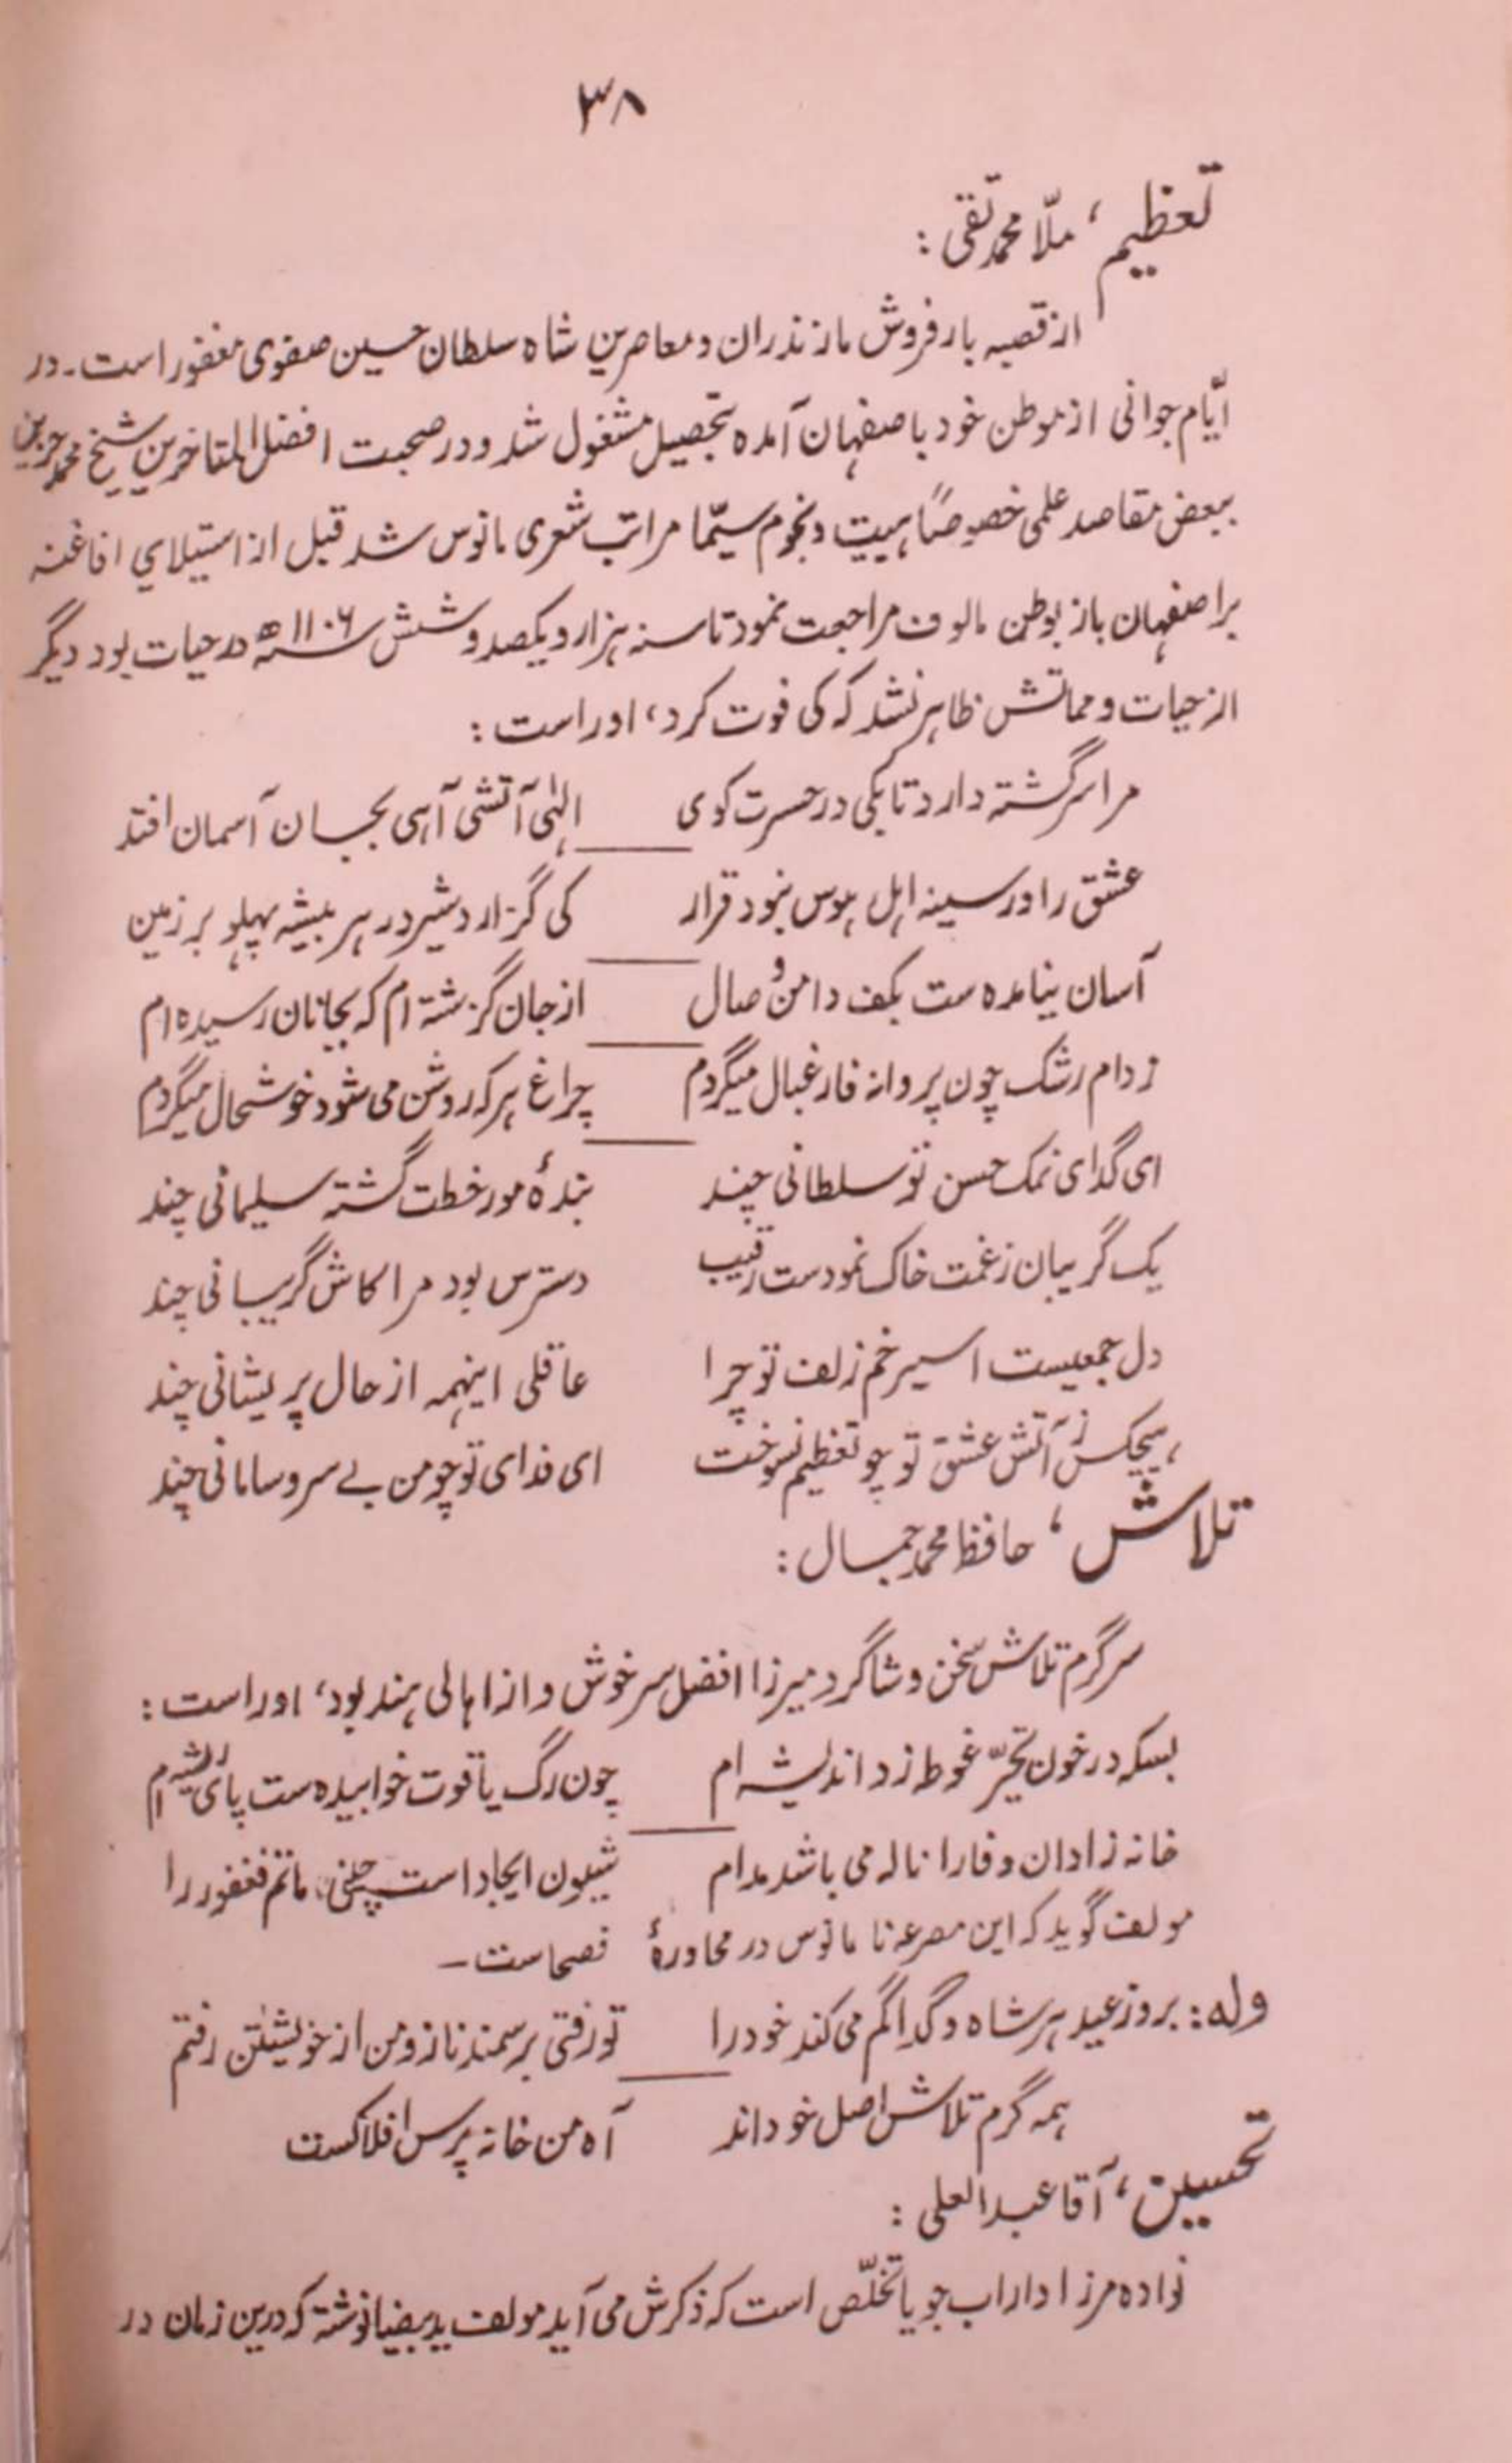 ۳۸
تعظیم، ملّا محمد تقی :
از قصبه بارفروش مازندران و معاصرین شاه سلطان حسین صفوی مغفور است۔ در
ایّام جوانی از موطن خود باصفهان آمده بتحصیل مشغول شد و در صحبت افضل المتاخرین شیخ محمد حزین
ببعض مقاصد علمی خصوصاً هییت و نجوم سیّما مراتب شعری مانوس شد قبل از استیلاي افاغنه
بر اصفهان باز بوطن مالوف مراجعت نمود تا سنه هزار و یکصد و شش سنه ۱۱۰۶ھ در حیات بود دیگر
از حیات و مماتش ظاهر نشد که کی فوت کرد، او راست :
مرا سرگشته دارد تا بکی در حسرت کوی    الٰهی آتشی آهی بجسان آسمان افتد
عشق را در سینه اهل هوس نبود قرار    کی گزارد شیر در هر بیشه پهلو بر زمین
آسان نیامده ست بکف دامن و صال    از جان گزشته ام که بجانان رسیده ام
ز دام رشک چون پروانه فارغبال میگردم    چراغ هر که روشن می شود خوشحال میگردم
ای گدای نمک حسن تو سلطانی چند    بندۀ مور خطت گشته سلیمانی چند
یک گریبان ز غمت خاک نمودست رقیب    دسترس بود مرا کاش گریبانی چند
دل جمعیست اسیر خم زلف تو چرا    عاقلی اینهمه از حال پریشانی چند
هیچکس ز آتش عشق تو چو تعظیم نسوخت    ای فدای تو چو من بے سر و سامانی چند
تلاش، حافظ محمد جمال :
سرگرم تلاش سخن و شاگرد میرزا افضل سرخوش و از اهالی هند بود، او راست :
بسکه در خون تحیّر غوطه زد اندیشه ام    چون رگ یاقوت خوابیده ست پای ریشه ام
خانه زادان وفا را ناله می باشد مدام    شیون ایجاد است چینی، ماتم فغفور را
مولف گوید که این مصرعه نا مانوس در محاورۀ فصحاست—
وله : بروز عید هر شاه و گدا گم می کند خود را    تو رفتی بر سمند ناز و من از خویشتن رفتم
همه گرم تلاش اصل خود اند    آه من خانه پرس افلاکست
تحسین، آقا عبدالعلی :
نواده مرزا داراب جویا تخلّص است که ذکرش می آید مولف ید بیضا نوشته که درین زمان در